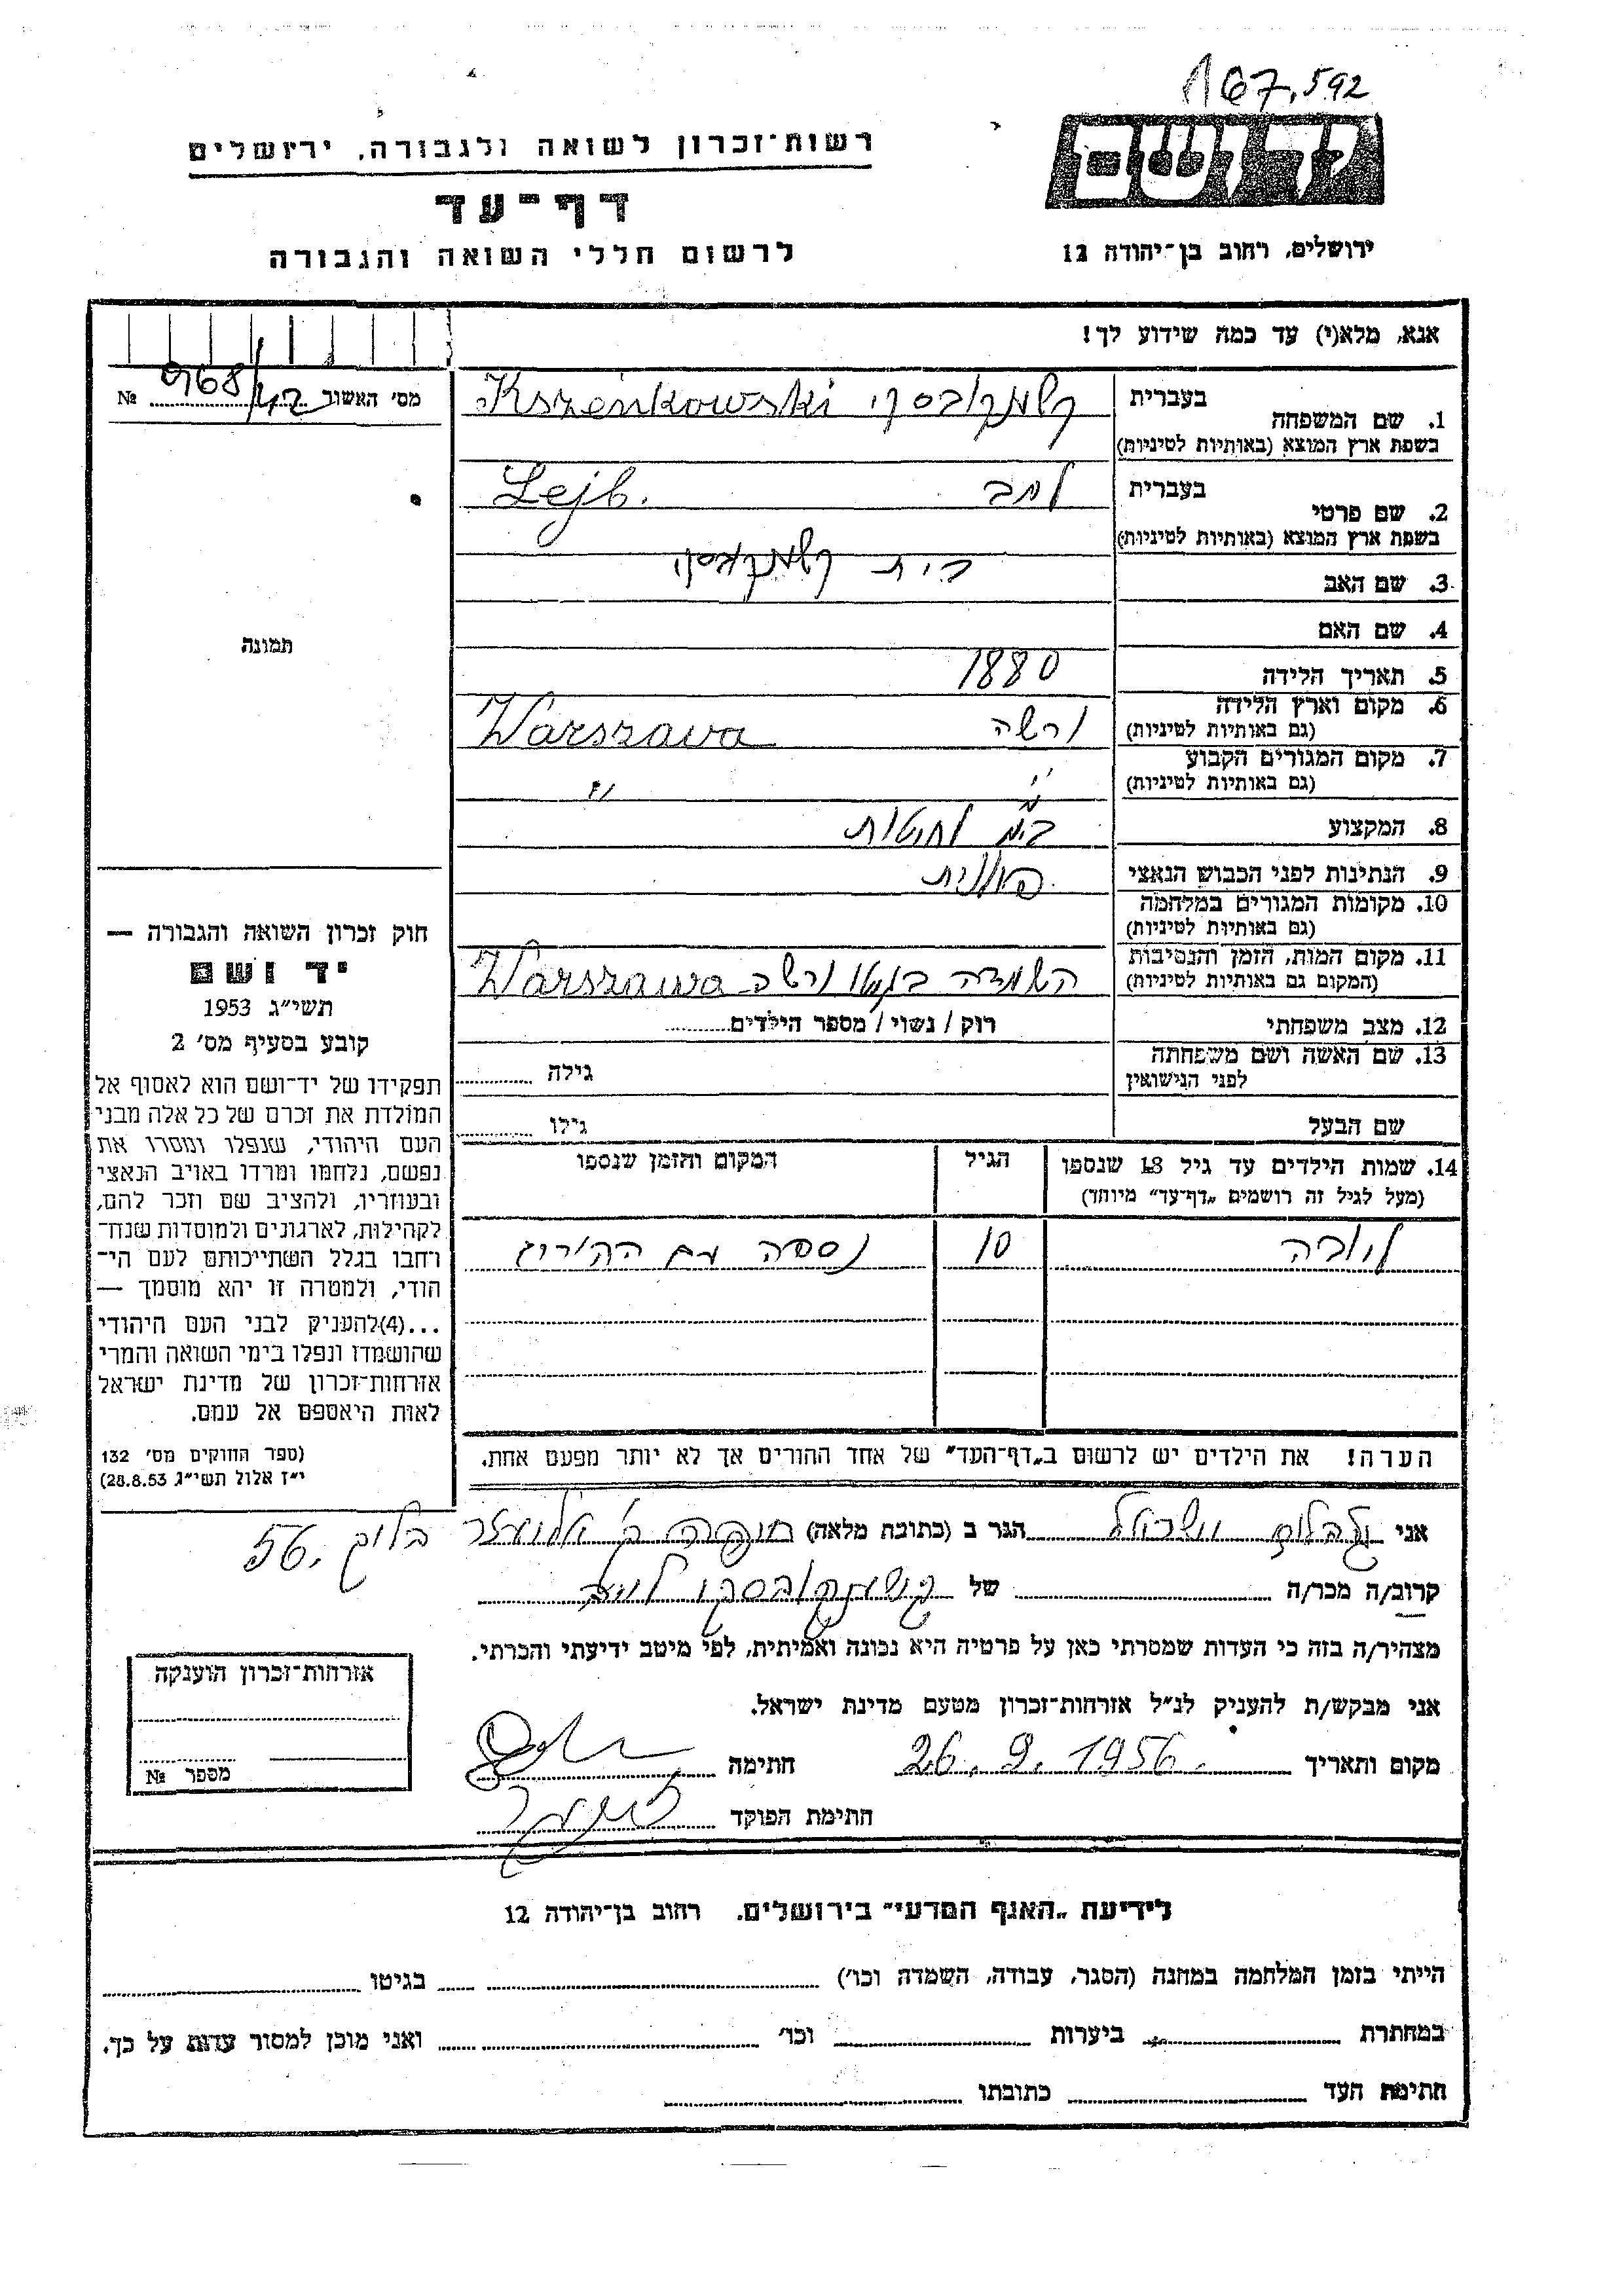 167,592
רשות־זכרון לשואה ולגבורה, ירושלים
יד ושם
דף־עד
לרשום חללי השואה והגבורה
ירושלים, רחוב בן־יהודה 12
אנא, מלא(י) עד כמה שידוע לך!
מס׳ האשור 968/42 №
תמונה
1. שם המשפחה
בעברית
בשפת ארץ המוצא (באותיות לטיניות)
Kszenkowski
2. שם פרטי
בעברית
בשפת ארץ המוצא (באותיות לטיניות)
Lejb.
בית
3. שם האב
4. שם האם
5. תאריך הלידה 1880
6. מקום וארץ הלידה
(גם באותיות לטיניות)
ורשה Warszawa
7. מקום המגורים הקבוע
(גם באותיות לטיניות)
״ ״
8. המקצוע
9. הנתינות לפני הכבוש הנאצי פולנית
10. מקומות המגורים במלחמה
(גם באותיות לטיניות)
11. מקום המות, הזמן והנסיבות
(המקום גם באותיות לטיניות)
השמדה בגטו ורשה Warszawa
12. מצב משפחתי רוק / נשוי / מספר הילדים
13. שם האשה ושם משפחתה
לפני הנישואין
גילה
שם הבעל גילו
14. שמות הילדים עד גיל 18 שנספו הגיל המקום והזמן שנספו
(מעל לגיל זה רושמים „דף־עד״ מיוחד)
ליובה 10 נספה עם ההורים
הערה! את הילדים יש לרשום ב„דף־העד״ של אחד ההורים אך לא יותר מפעם אחת.
חוק זכרון השואה והגבורה —
יד ושם
תשי״ג 1953
קובע בסעיף מס׳ 2
תפקידו של יד־ושם הוא לאסוף אל
המולדת את זכרם של כל אלה מבני
העם היהודי, שנפלו ומסרו את
נפשם, נלחמו ומרדו באויב הנאצי
ובעוזריו, ולהציב שם וזכר להם,
לקהילות, לארגונים ולמוסדות שנח־
רחבו בגלל השתייכותם לעם הי־
הודי, ולמטרה זו יהא מוסמך —
...(4)להעניק לבני העם היהודי
שהושמדו ונפלו בימי השואה והמרי
אזרחות־זכרון של מדינת ישראל
לאות היאספם אל עמם.
(ספר החוקים מס׳ 132
י״ז אלול תשי״ג 28.8.53)
אני הגר ב (כתובת מלאה) בלוק 56.
קרוב/ה מכר/ה של
מצהיר/ה בזה כי העדות שמסרתי כאן על פרטיה היא נכונה ואמיתית, לפי מיטב ידיעתי והכרתי.
אני מבקש/ת להעניק לנ״ל אזרחות־זכרון מטעם מדינת ישראל.
מקום ותאריך 26.9.1956. חתימה
חתימת הפוקד
אזרחות־זכרון הוענקה
מספר №
לידיעת „האגף המדעי״ בירושלים, רחוב בן־יהודה 12
הייתי בזמן המלחמה במחנה (הסגר, עבודה, השמדה וכו׳) בגיטו
במחתרת ביערות וכו׳ ואני מוכן למסור עדות על כך.
חתימת העד כתובתו